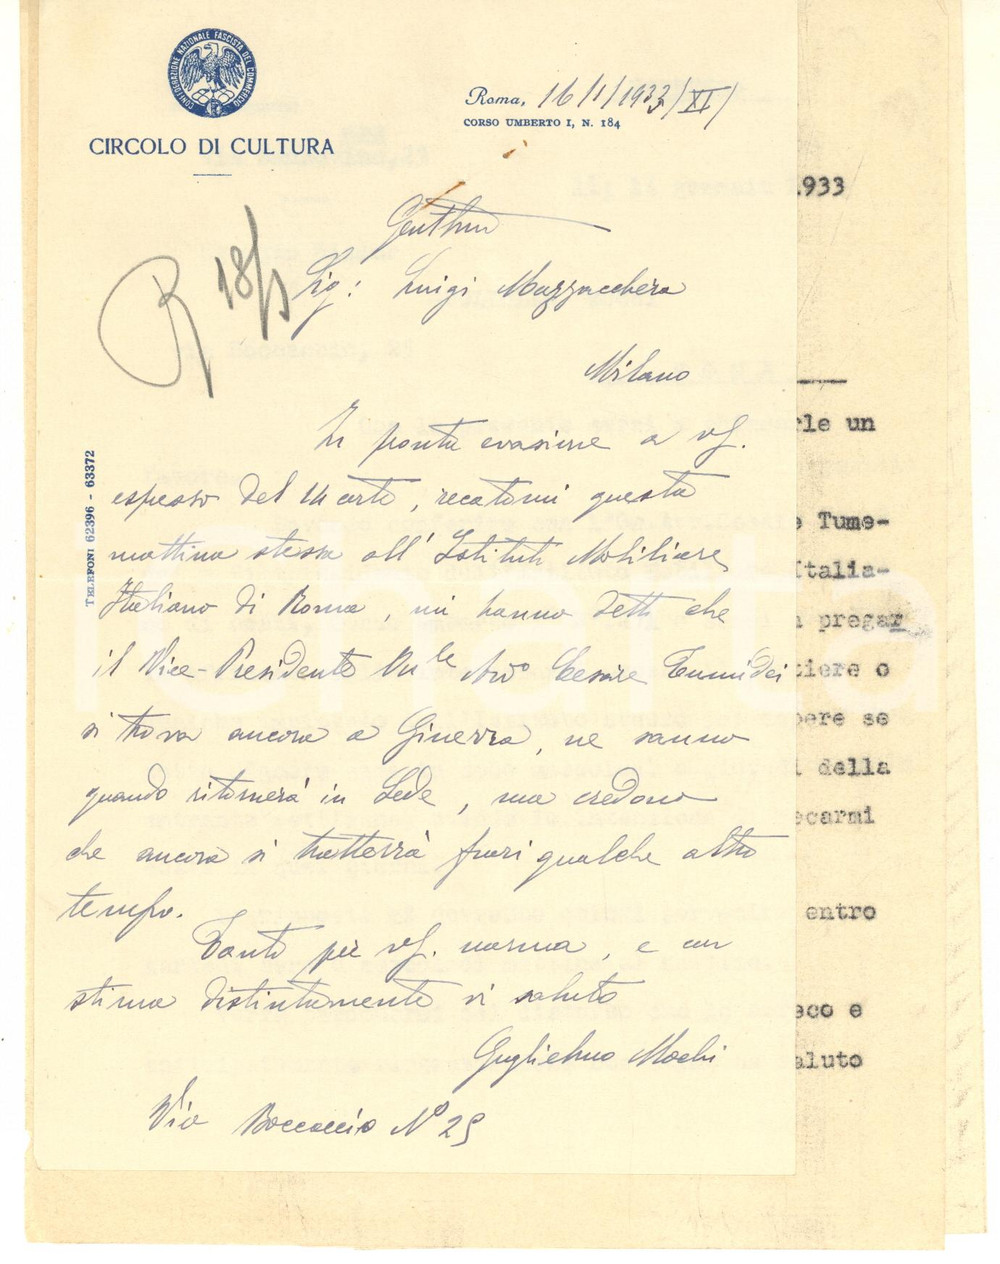 CONFEDERAZIONE NAZIONALE FASCISTA DEL COMMERCIO
CIRCOLO DI CULTURA
Roma, 16/1/1933/XI/
CORSO UMBERTO I, N. 184
R 18/1
TELEFONI 62396 - 63372
Sig: Luigi Mazzucchera
Milano
In pronta evasione a vs/.
espresso del 14 corte, recatomi questa
mattina stessa all'Istituto Mobiliare
Italiano di Roma, mi hanno detto che
il Vice-Presidente On le Avo Cesare Tumidei
si trova ancora a Ginevra, ne sanno
quando ritornerà in Sede, ma credono
che ancora si tratterrà fuori qualche altro
tempo.
Tanto per vs/. norma, e con
stima distintamente vi saluto
Guglielmo Mochi
Via Boccaccio No 25
1933
rle un
e Tume-
Italia-
a pregar
tiere o
pere se
i della
ecarmi
entro
eco e
aluto